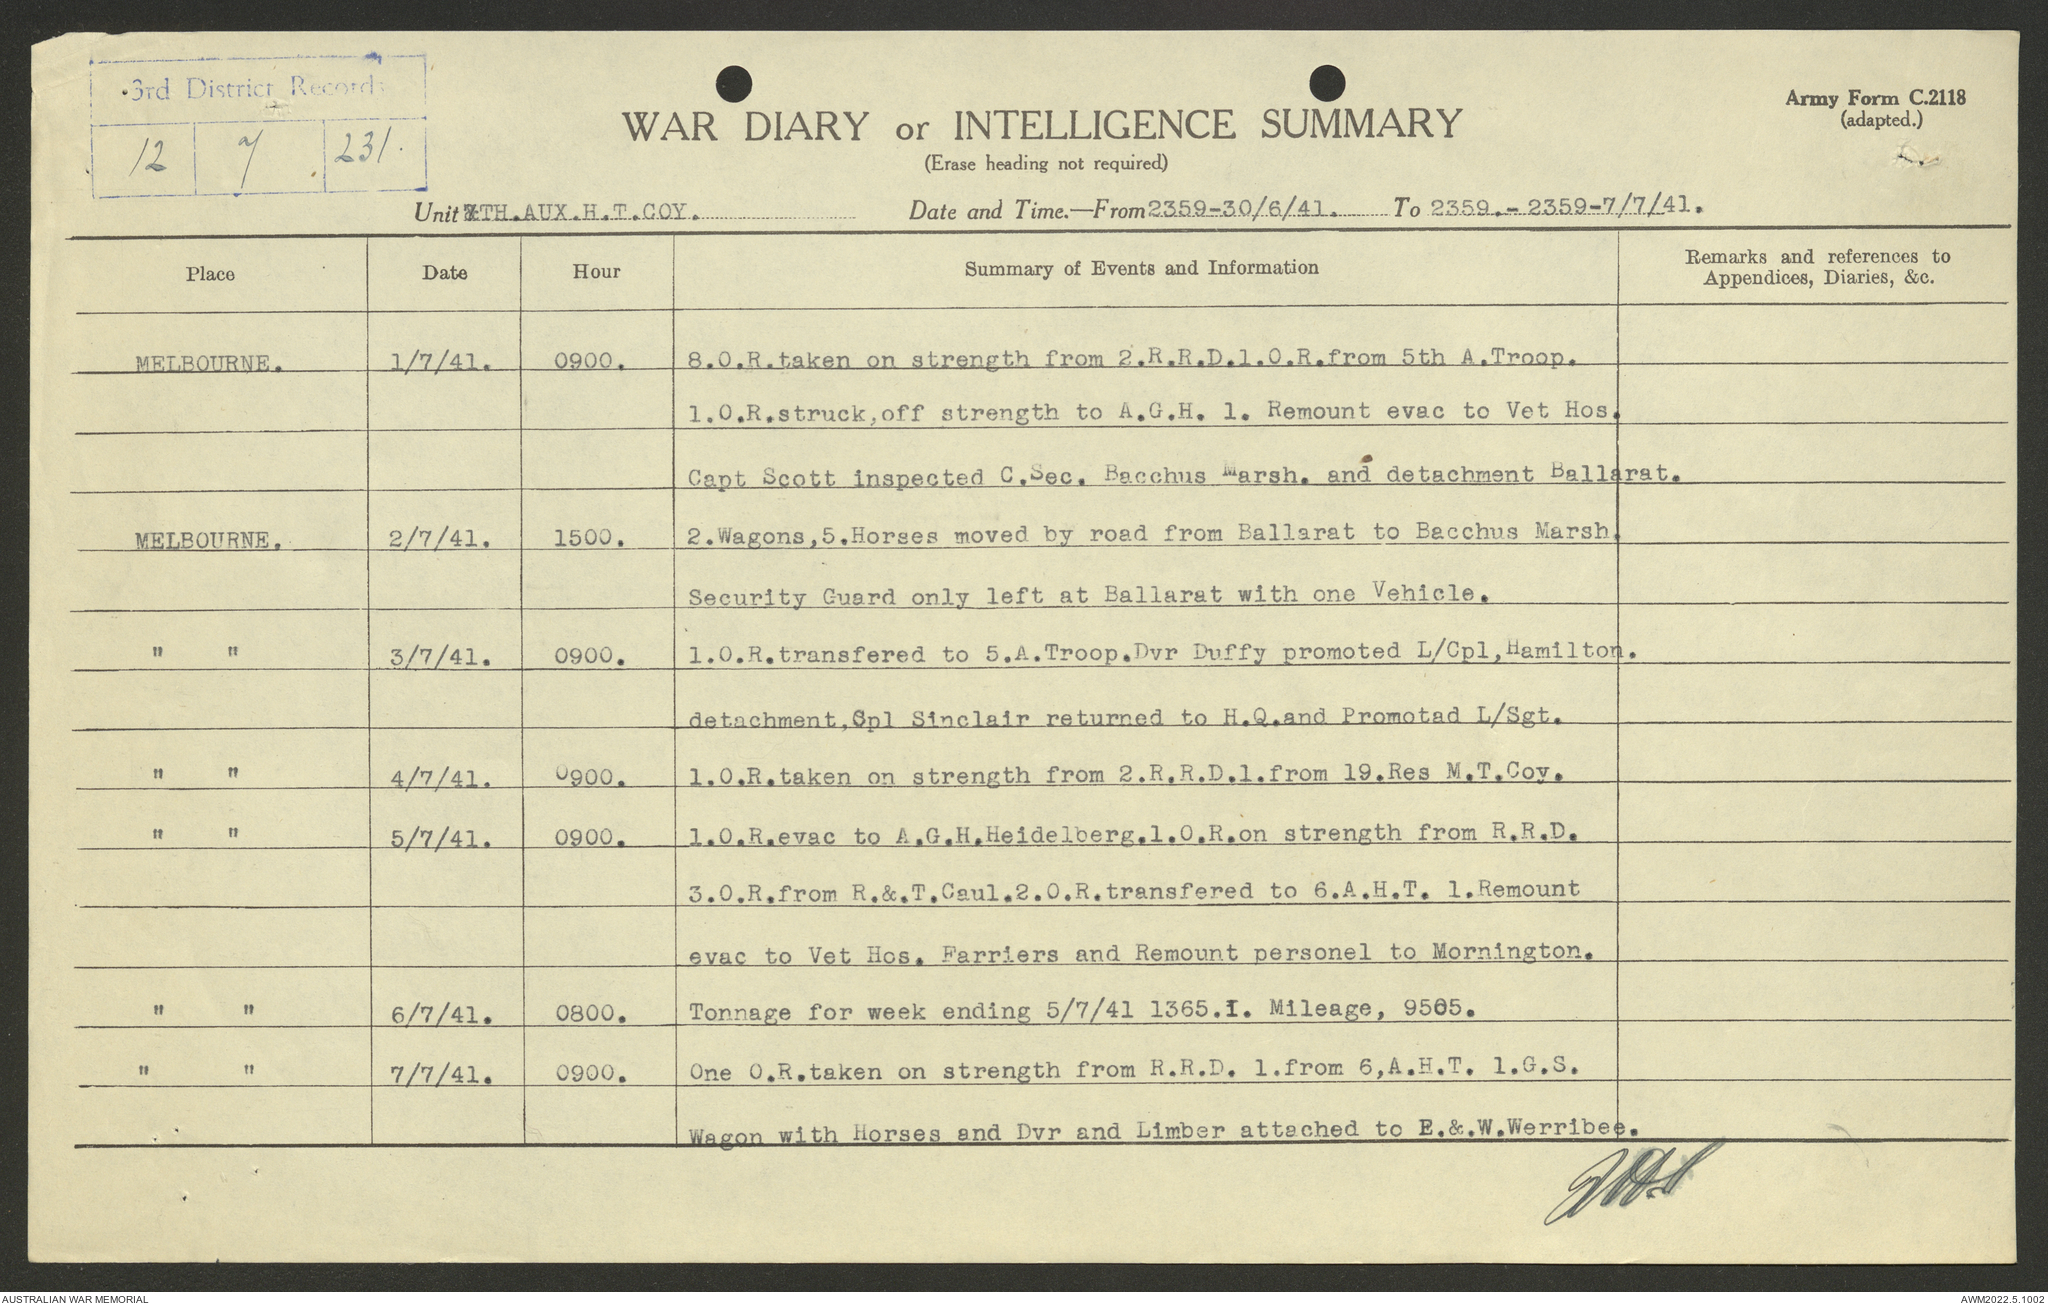 3rd District Records
12 7 231.
WAR DIARY or INTELLIGENCE SUMMARY
(Erase heading not required)
Army Form C.2118
(adapted.)
Unit 7TH.AUX.H.T.COY. Date and Time.—From 2359-30/6/41. To 2359.-2359-7/7/41.
Place Date Hour Summary of Events and Information Remarks and references to
Appendices, Diaries, &c.
MELBOURNE. 1/7/41. 0900. 8.O.R.taken on strength from 2.R.R.D.1.O.R.from 5th A.Troop.
1.O.R.struck,off strength to A.G.H. 1. Remount evac to Vet Hos.
Capt Scott inspected C.Sec. Bacchus Marsh. and detachment Ballarat.
MELBOURNE. 2/7/41. 1500. 2.Wagons,5.Horses moved by road from Ballarat to Bacchus Marsh.
Security Guard only left at Ballarat with one Vehicle.
" " 3/7/41. 0900. 1.O.R.transfered to 5.A.Troop.Dvr Duffy promoted L/Cpl,Hamilton.
detachment,Cpl Sinclair returned to H.Q.and Promotad L/Sgt.
" " 4/7/41. 0900. 1.O.R.taken on strength from 2.R.R.D.1.from 19.Res M.T.Coy.
" " 5/7/41. 0900. 1.O.R.evac to A.G.H.Heidelberg.1.O.R.on strength from R.R.D.
3.O.R.from R.&.T.Caul.2.O.R.transfered to 6.A.H.T. 1.Remount
evac to Vet Hos. Farriers and Remount personel to Mornington.
" " 6/7/41. 0800. Tonnage for week ending 5/7/41 1365.1. Mileage, 9505.
" " 7/7/41. 0900. One O.R.taken on strength from R.R.D. 1.from 6,A.H.T. 1.G.S.
Wagon with Horses and Dvr and Limber attached to E.&.W.Werribee.
AUSTRALIAN WAR MEMORIAL AWM2022.5.1002